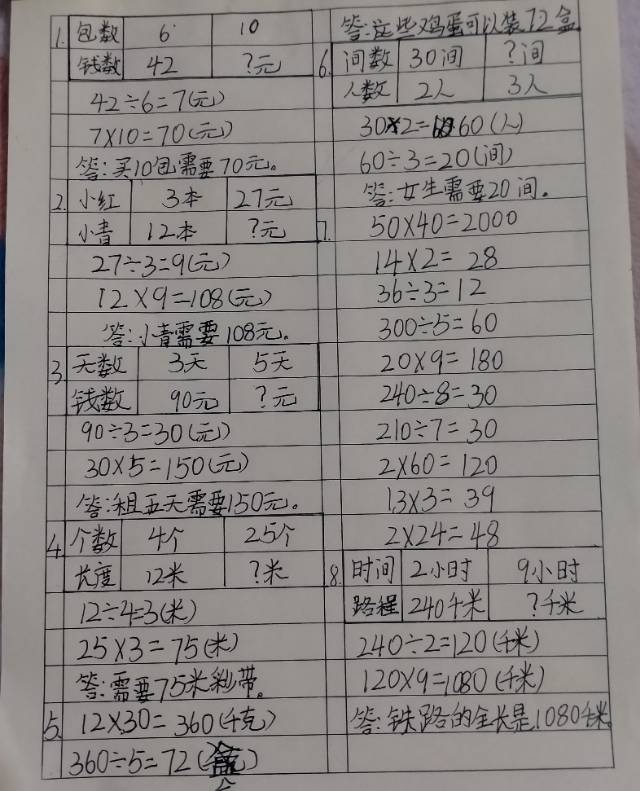 1. 包数 6 10
钱数 42 ?元
42÷6=7(元)
7×10=70(元)
答:买10包需要70元。
2. 小红 3本 27元
小青 12本 ?元
27÷3=9(元)
12×9=108(元)
答:小青需要108元。
3. 天数 3天 5天
钱数 90元 ?元
90÷3=30(元)
30×5=150(元)
答:租五天需要150元。
4. 个数 4个 25个
长度 12米 ?米
12÷4=3(米)
25×3=75(米)
答:需要75米彩带。
5. 12×30=360(千克)
360÷5=72(盒)
答:这些鸡蛋可以装72盒
6. 间数 30间 ?间
人数 2人 3人
30×2=60(人)
60÷3=20(间)
答:女生需要20间。
7. 50×40=2000
14×2=28
36÷3=12
300÷5=60
20×9=180
240÷8=30
210÷7=30
2×60=120
13×3=39
2×24=48
8. 时间 2小时 9小时
路程 240千米 ?千米
240÷2=120(千米)
120×9=1080(千米)
答:铁路的全长是1080千米